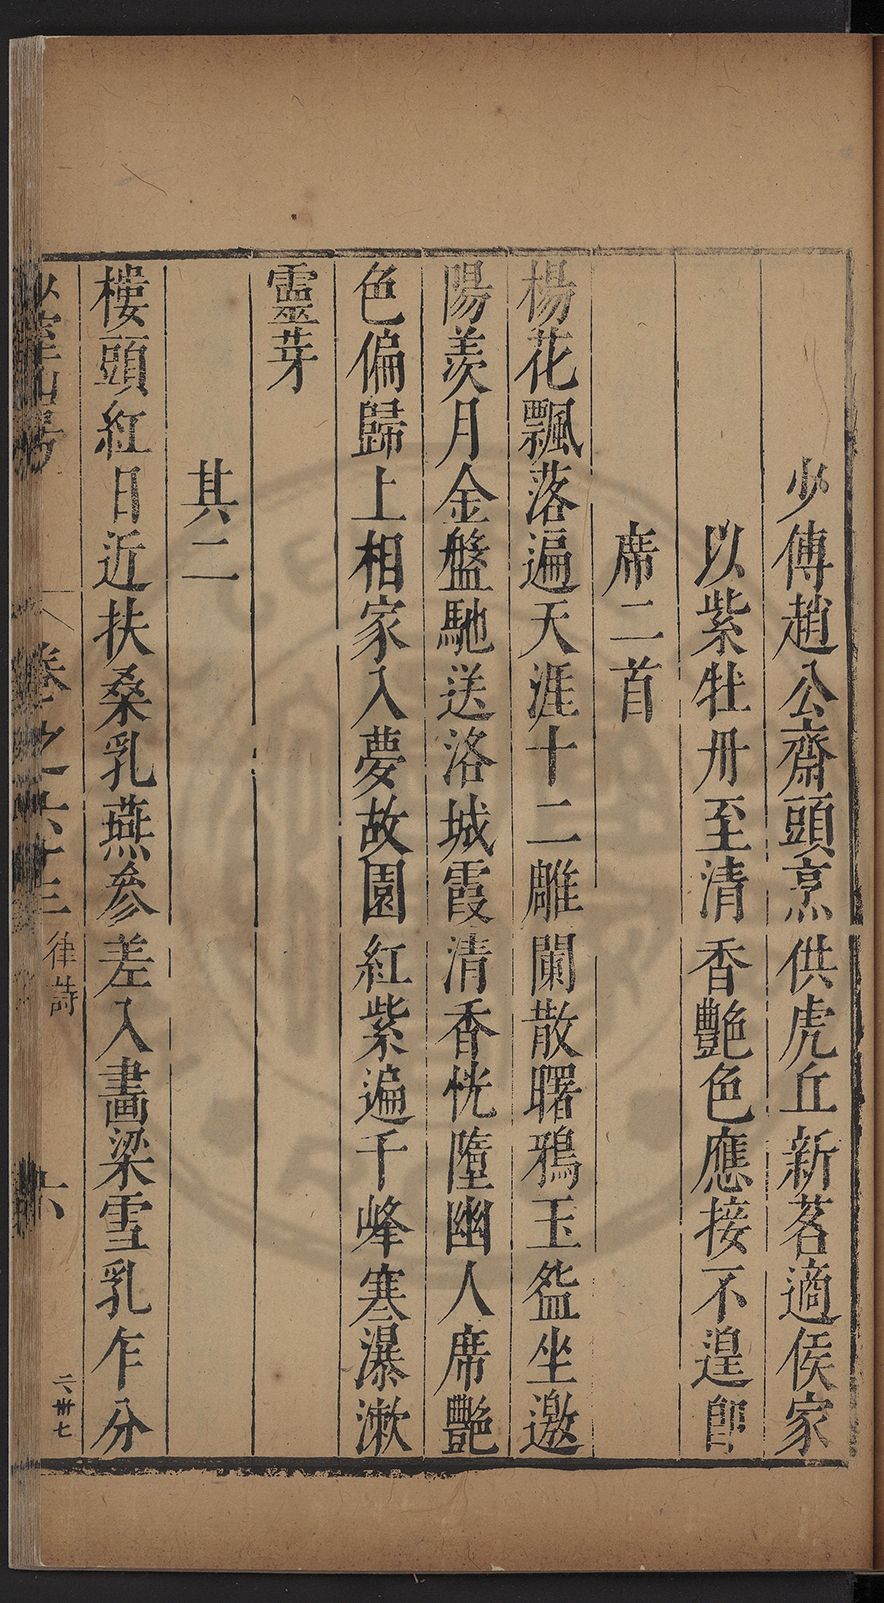 少傅趙公齋頭烹供虎丘新茗適侯家
以紫牡丹至清香艷色應接不遑即
席二首
楊花飄落遍天涯十二雕闌散曙鴉玉甃坐邀
陽羨月金盤馳送洛城霞清香恍墮幽人席艷
色偏歸上相家入夢故園紅紫遍千峰寒瀑漱
靈芽
其二
樓頭紅日近扶桑乳燕參差入畫梁雪乳乍分
山房
卷之六十三
律詩
六
二卌七